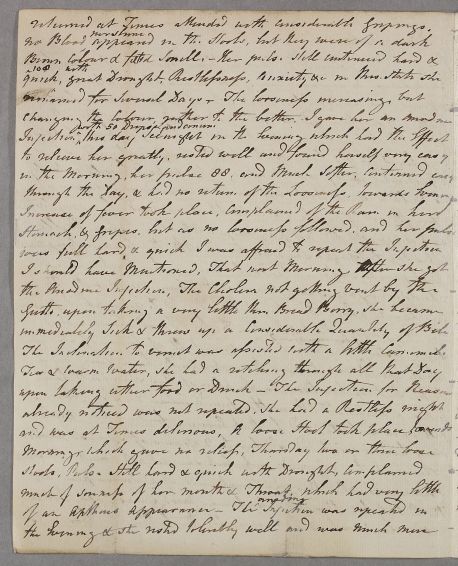 returned at Times attended with considerable Gripings,
no Blood ever since appeared in the Stools, but they were of a dark
Brown colour & fetid Smell. Her pulse still continued hard &
108
quick, with great Drought, Restlessness, Anxiety, &c in this State she
remained for Several Days. The looseness increasing, but
changing the colour rather to the better. I gave her an anodine
Injection with 50 Drops this day Se'ennight in the Evening which had the Effect
to relieve her greatly, rested well and found herself very easy
in the Morning, her pulse 88. and much softer, Continued easy
through the Day, & had no return of the Looseness, towards Evening
Increase of fever took place, complained of the Pain in her
Stomach, & Gripes, but as no looseness followed, and her pulse
was full hard, & quick I was affraid to repeat the Injection
I should have Mentioned, That next Morning After she got
the Anodine Injection, The Cholera not getting vent by the
Gutts, upon taking a very little thin Bread Berry, she became
immediately Sick & threw up a Considerable Quantity of Bile
The Inclination to vomit was assisted with a little Camomile
Tea & warm Water, she had a retching through all that Day
upon taking either food or Drink — The Injection for Reasons
already noticed was not repeated, she had a Restless night
and was at Times delirious, A loose Stool took place towards
Morning which gave no relief, Thursday two or three loose
Stools, Pulse Still hard & quick with Drought, complained
much of soreness of her mouth & Throat, which had very little
of an Apthous appearance — The anodine Injection was repeated in
the Evening & she rested tolerably well and was much more